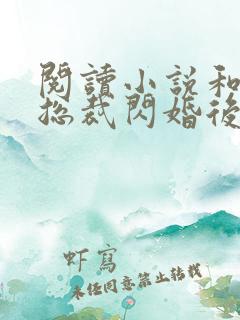 閱讀小說和
總裁閃婚後
虾寫
未任同意禁止转载